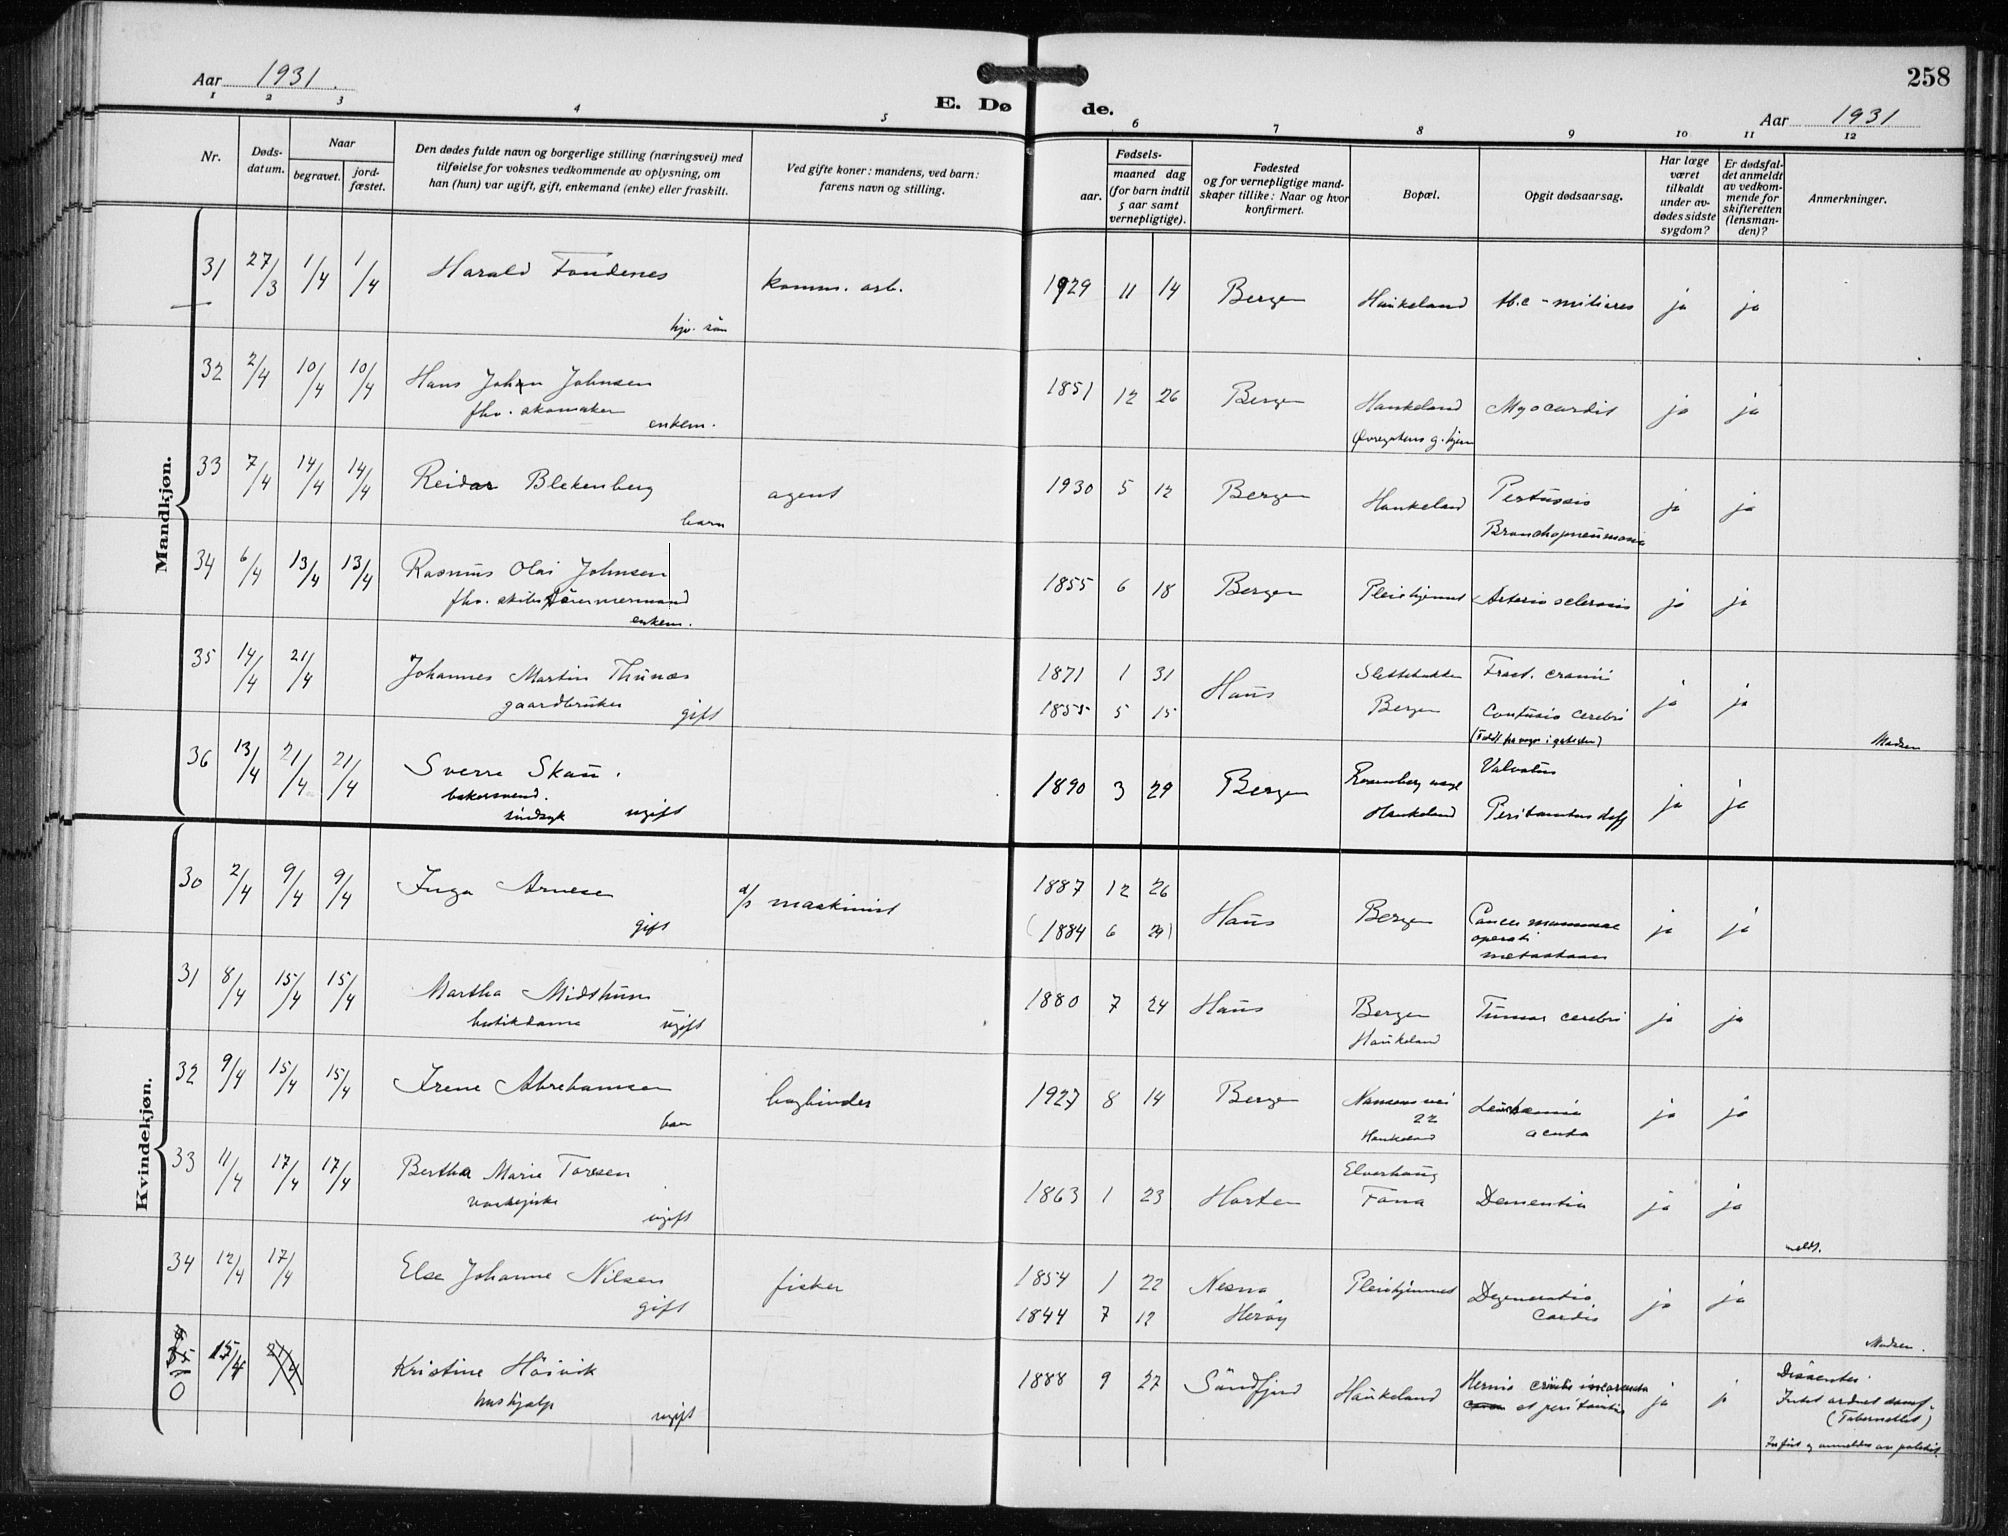 Aar 1931.
258
E. Dø de.
Aar 1931
1 2 3 4 5 6 7 8 9 10 11 12
Nr.
Døds-
datum.
Naar
begravet.
jord-
fæstet.
Den dødes fulde navn og borgerlige stilling (næringsvei) med
tilføielse for voksnes vedkommende av oplysning, om
han (hun) var ugift, gift, enkemand (enke) eller fraskilt.
Ved gifte koner: mandens, ved barn:
farens navn og stilling.
Fødsels-
aar.
maaned dag
(for barn indtil
5 aar samt
vernepligtige).
Fødested
og for vernepligtige mand-
skaper tillike: Naar og hvor
konfirmert.
Bopæl.
Opgit dødsaarsag.
Har læge
været
tilkaldt
under av-
dødes sidste
sygdom?
Er dødsfal-
det anmeldt
av vedkom-
mende for
skifteretten
(lensman-
den)?
Anmerkninger.
Mandkjøn.
31 27/3 1/4 1/4 Harald Fondenes komm. arb. 1929 11 14 Bergen Haukeland tb.c - miliares ja ja
hjv. søn
32 2/4 10/4 10/4 Hans Johan Johnsen 1851 12 26 Bergen Haukeland Myocardit ja ja
fhv. skomaker
enkem. Øvregatens g. hjem
33 7/4 14/4 14/4 Reidar Blekenberg agent 1930 5 12 Bergen Haukeland Pertussis ja ja
barn Bronchopneumoni
34 6/4 13/4 13/4 Rasmus Olai Johnsen 1855 6 18 Bergen Pleiehjemmet Arterio sclerosis ja ja
fhv. skibstømmermand
enkem.
35 14/4 21/4 Johannes Martin Thunæs 1871 1 31 Haus Slettebakken Fract. cranii ja ja
gaardbruker gift 1855 5 15 Bergen Contusio cerebri
Madsen
36 13/4 21/4 21/4 Sverre Skau. 1890 3 29 Bergen Valvulus ja ja
bakersvend. Haukeland Peritonitus diff
sindsyk ugift
Kvindekjøn.
30 2/4 9/4 9/4 Inga Arnesen d/s maskinist 1887 12 26 Haus Bergen Cancer mammae ja ja
gift (1884 6 29) operati
metastaser
31 8/4 15/4 15/4 Martha Midthun 1880 7 24 Haus Bergen Tumor cerebri ja ja
butikdame ugift Haukeland
32 9/4 15/4 15/4 Irene Abrahamsen bogbinder 1927 8 14 Bergen Nansens vei Leukæmia ja ja
barn 22 acuta
Haukeland
33 11/4 17/4 17/4 Bertha Marie Toresen 1863 1 23 Horten Elverhaug Dementia ja ja
ugift Fana
meldt.
34 12/4 17/4 Else Johanne Nilsen fisker 1854 1 22 Nesna Pleiehjemmet Degeneratio ja ja
gift 1844 7 12 Herøy Cordis
Madsen.
0 15/4 21/4 Kristine Høivik 1888 9 27 Søndfjord Haukeland Hernia cruralis incarcerata ja ja Dissenter.
hushjælp ugift et peritonitis Intet ordnet
(Tabernaklet)